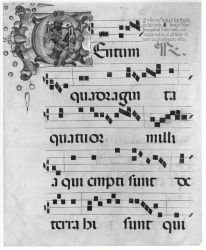 CEntum
quadragin ta
quatuor milli
a qui empti sunt de
terra hi sunt qui